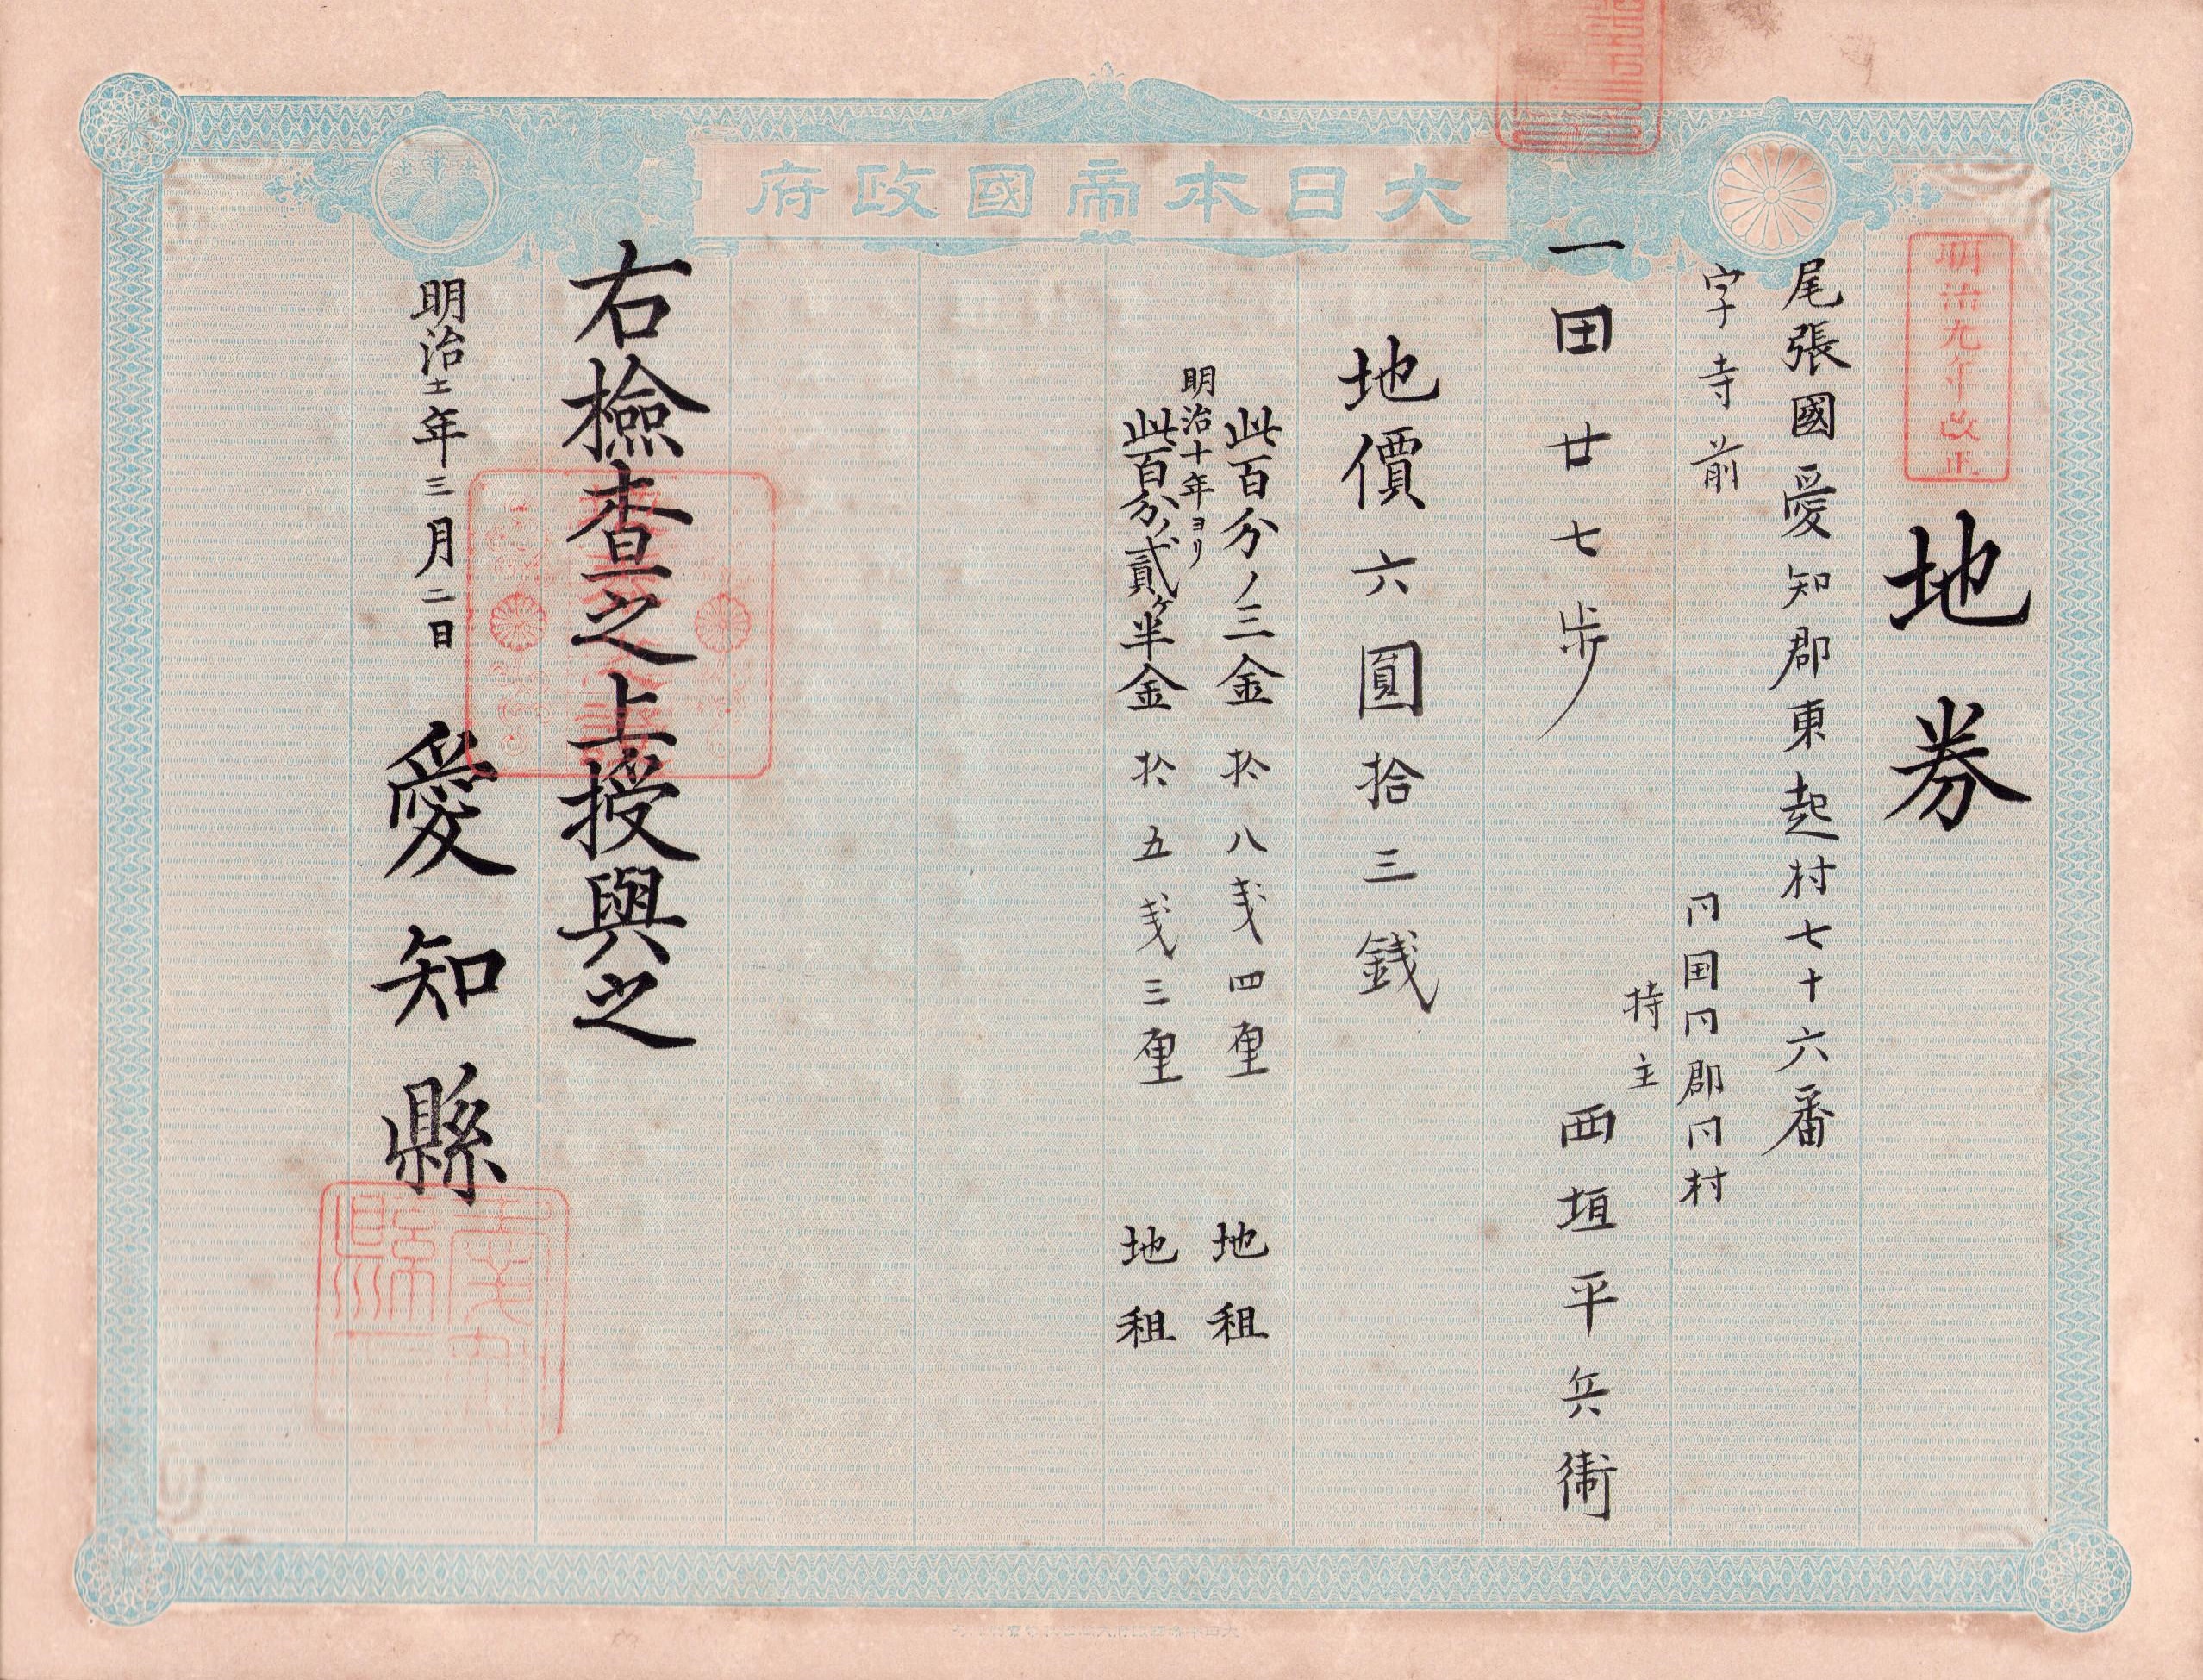 大日本帝國政府
明治九年改正
地券
尾張國愛知郡東起村七十六番
字寺前
一田廿七歩
同国同郡同村
持主
西垣平兵衛
地價六圓拾三銭
此百分ノ三金拾八戔四厘 地租
明治十年ヨリ
此百分ノ貳ヶ半金拾五戔三厘 地租
右檢查之上授與之
明治十二年三月二日
愛知縣